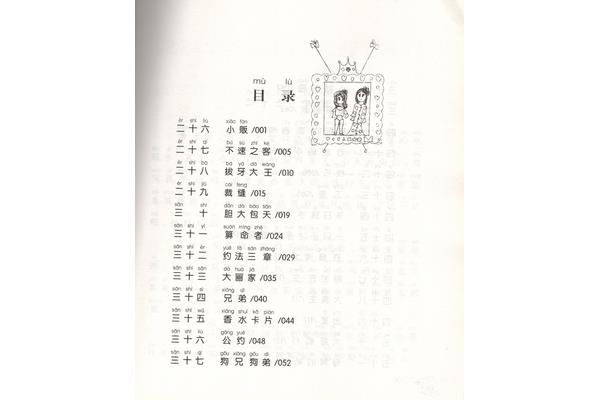 mù lù
目 录
èr shí liù xiǎo fàn
二十六 小贩/001
èr shí qī bú sù zhī kè
二十七 不速之客/005
èr shí bā bá yá dà wáng
二十八 拔牙大王/010
èr shí jiǔ cái feng
二十九 裁缝/015
sān shí dǎn dà bāo tiān
三 十 胆大包天/019
sān shí yī suàn mìng zhě
三十一 算命者/024
sān shí èr yuē fǎ sān zhāng
三十二 约法三章/029
sān shí sān dà huà jiā
三十三 大画家/035
sān shí sì xiōng dì
三十四 兄弟/040
sān shí wǔ xiāng shuǐ kǎ piàn
三十五 香水卡片/044
sān shí liù gōng yuē
三十六 公约/048
sān shí qī gǒu xiōng gǒu dì
三十七 狗兄狗弟/052